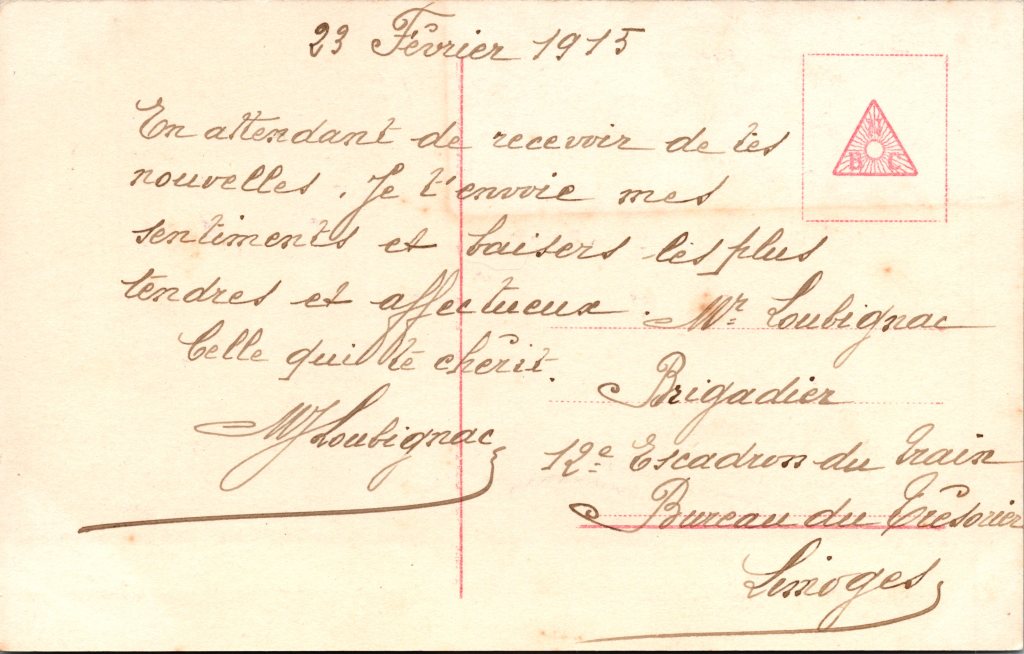 23 Février 1915
En attendant de recevoir de tes
nouvelles. Je t'envoie mes
sentiments et baisers les plus
tendres et affectueux.
Celle qui te chérit.
Loubignac
Mr. Loubignac
Brigadier
12e Escadron du Train
Bureau du Trésorier
Limoges